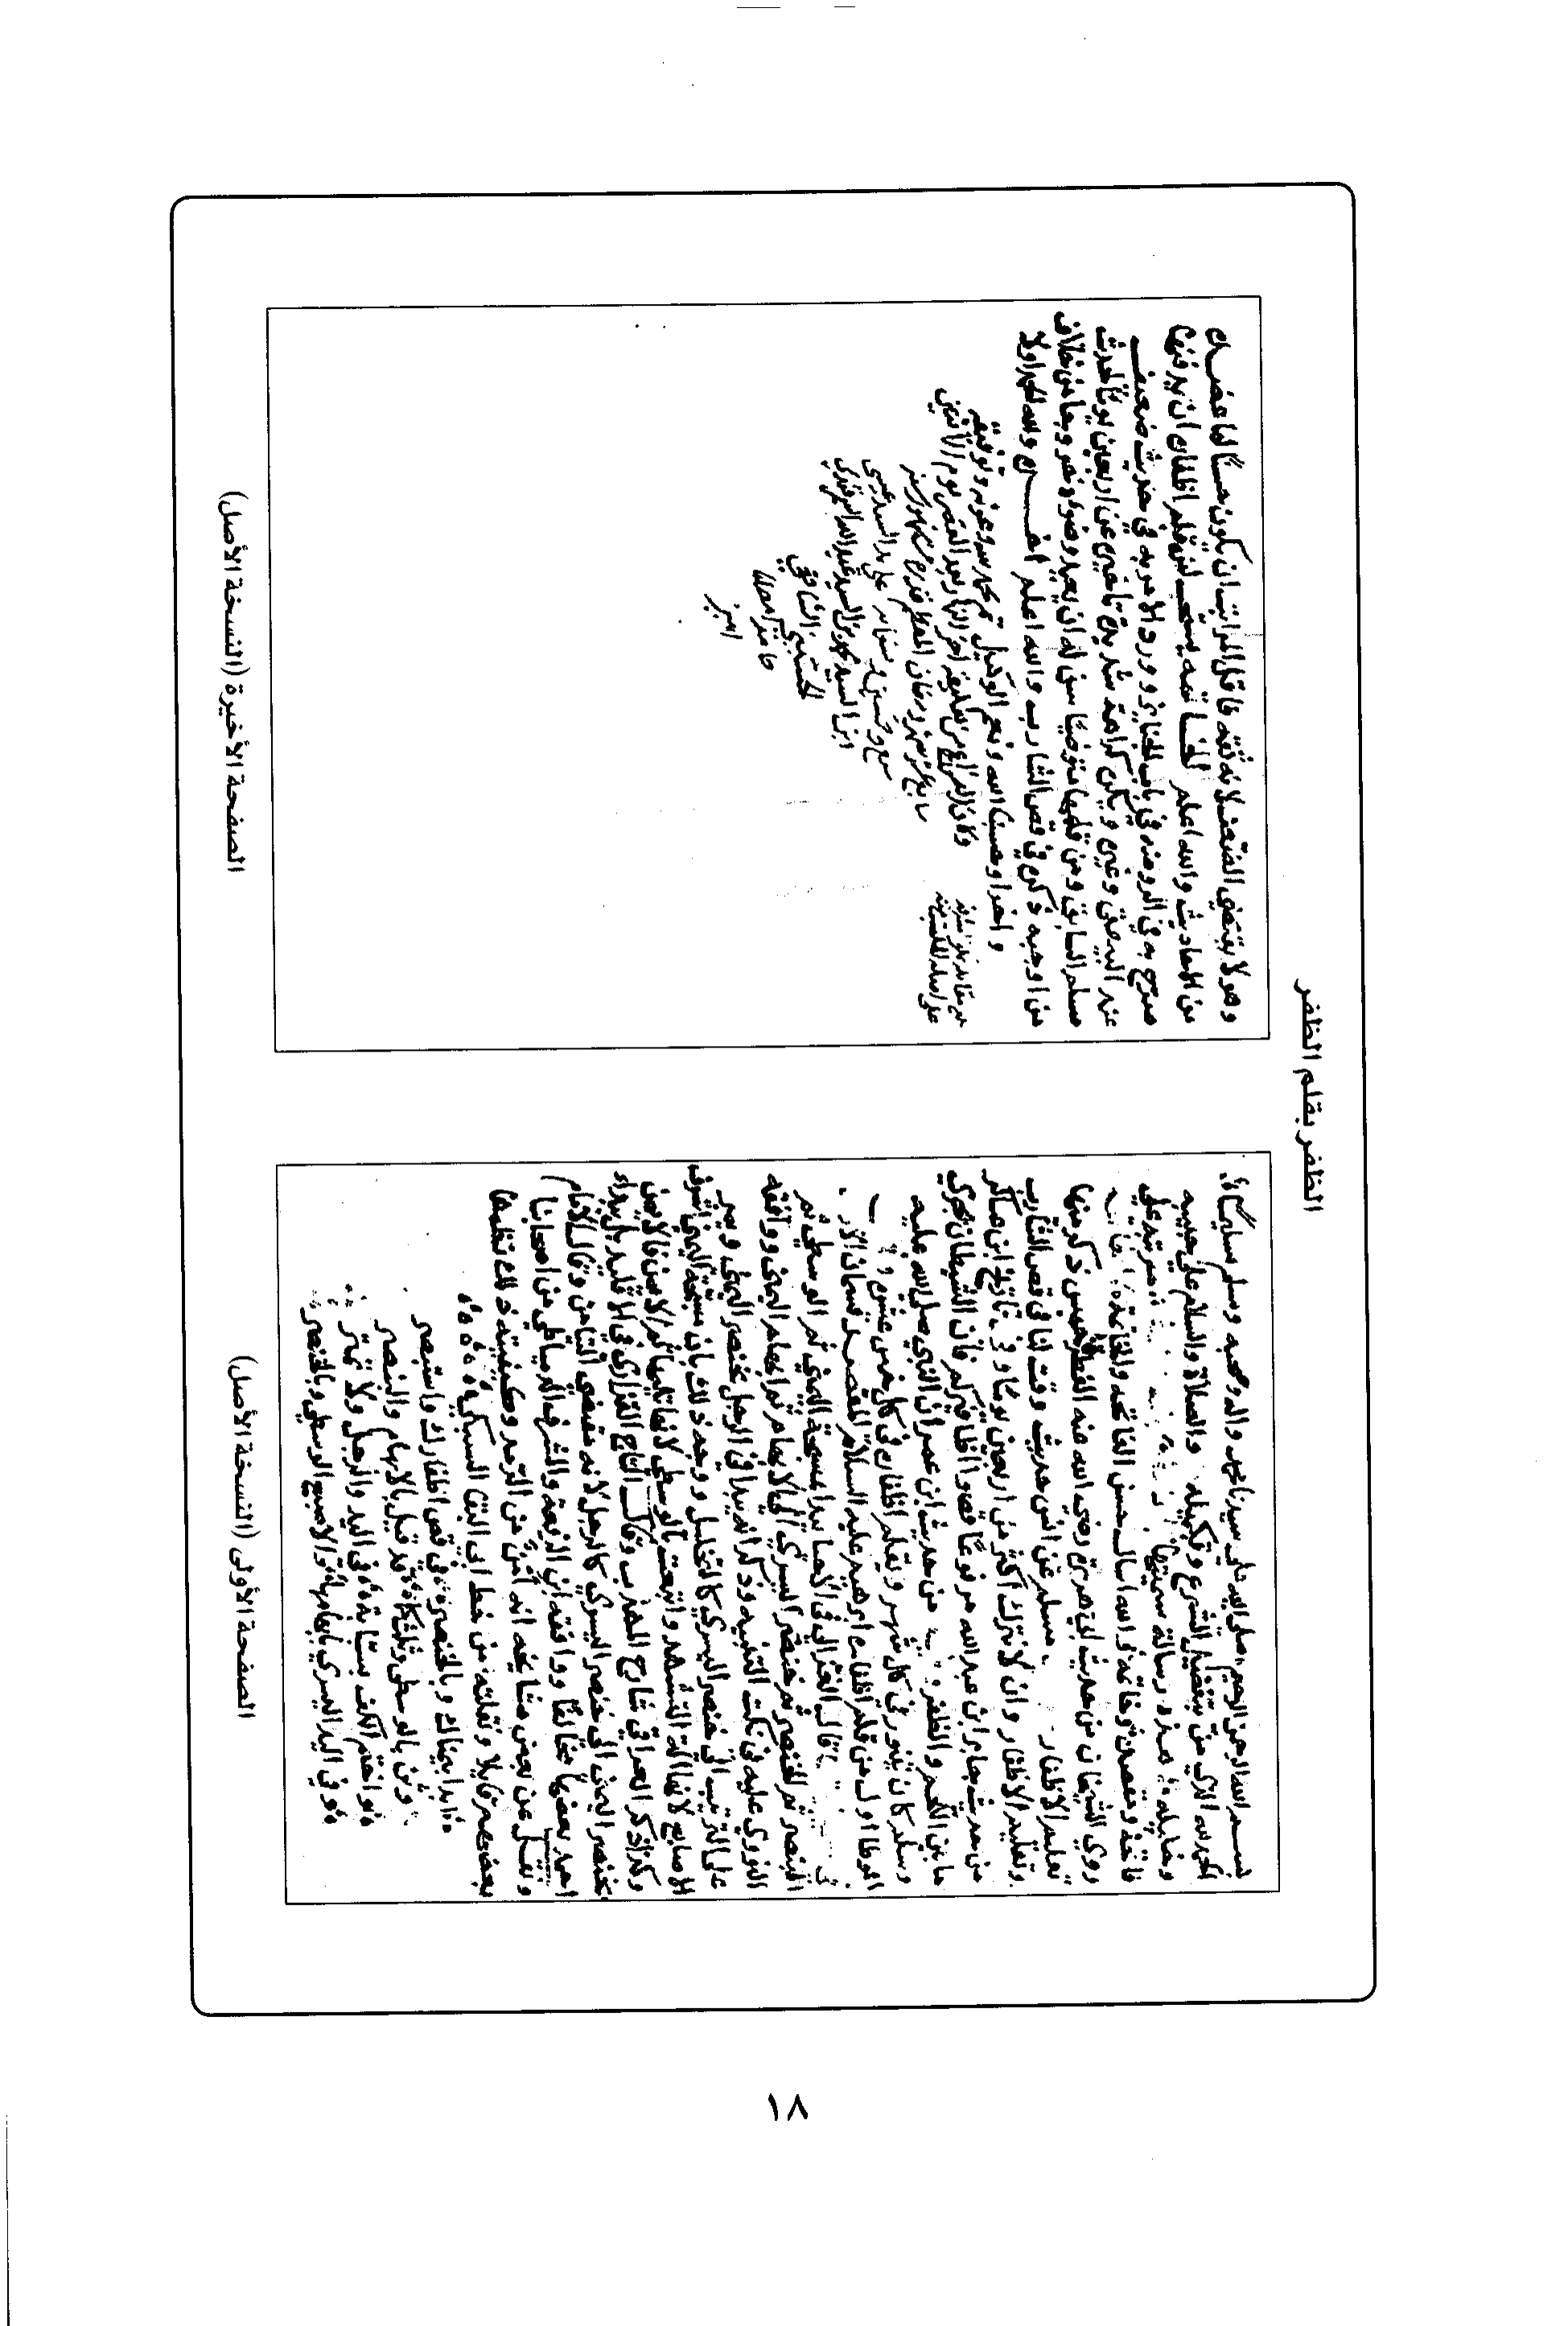 الظفر بقلم الظفر
بسم الله الرحمن الرحيم صلى الله على سيدنا محمد واله وصحبه وسلم تسليما
الحمد لله الذي من بتفضيل الشرع وتكميله والصلاة والسلام على حبيبه
وخليله هذه رسالة سميتها
فاتحة ومقصدين وخاتمة والله اسال حسن الفاتحة والخاتمة
روى الشيخان من حديث ابي هريرة رضي الله عنه الفطر خمس ذكر منها
تقليم الاظفار مسلم عن انس حديث وقت لنا في قص الشارب
وتقليم الاظفار وان لا نترك اكثر من اربعين يوما وفي تاريخ ابن عساكر
من حديث جابر بن عبد الله مرفوعا قصوا اظافيركم فان الشيطان يجري
ما بين اللحم والظفر من حديث ابن عمر ان النبي صلى الله عليه
وسلم كان يتنور في كل شهر ويقلم اظفاره في كل خمس عشرة
الموطا اول من قلم اظفاره ابرهيم عليه السلام المقصد
قال الغزالي في الاحيا يبدا بمسبحة اليمنى ثم الوسطى ثم
البنصر ثم الخنصر ثم خنصر اليسرى الى الابهام ثم ابهام اليمنى ووافقه
النووي عليه في نكت التنبيه وذكر انه يبدا في الرجل بخنصر اليمنى ويمر
على الترتيب الى خنصر اليسرى كالتخليل ووجه ذلك بان مسبحة اليمنى اشرف
الاصابع لانها الة التشهد واتبعت بالوسطى لانها تليها
وكذا ذكر العراقي شارح المهذب وقال التاج الفزاري في الاقليد بل يبدا
بخنصر اليمنى الى خنصر اليسرى كالرجل لانه مقتضى التيامن وقال الامام
احمد بقصها مخالفا ووافقه ابن الرفعة والشرف الدمياطي من اصحابنا
ونقل عن بعض مشايخه انه امن من الرمد وكيفية ذلك نظمها
بعضهم قايلا ونقلته من خط ابي البقا السبكي
ابدا بيمناك وبالخنصر في قص اظفارك واستبصر
وثن بالوسطى وثلث كما قد قيل بالابهام والبنصر
واختم الكف بسبابة في اليد والرجل ولا تمتر
وفي اليد اليسرى بابهامها والاصبع الوسطى وبالخنصر
الصفحة الأولى (النسخة الأصل)
وهو لا يقتضي الضعف لانه ثقة فاقل المراتب ان يكون حسنا لما عضده
من الاحاديث والله اعلم الخاتمة يستحب لمن قلم اظفاره ان يدفنها
صرح به في الروضة في باب الجنائز وورد الامر به في حديث ضعيف
عند البيهقي وغيره ويكره كراهة شديدة تاخيره عن اربعين يوما لحديث
مسلم السابق ومن قلمها متوضيا سن له ان يعيد وضوءه خروجا من خلاف
من اوجبه ذكره في قص الشارب والله اعلم اخره ولله الحمد اولا
واخرا وحسبنا الله ونعم الوكيل تم بحمد الله وعونه وتوفيقه
وكان الفراغ من تعليقه اخر النهار بعد العصر يوم الاثنين
سابع عشر شهر رمضان المعظم قدره
الشافعي
حامدا مصليا
امين
الصفحة الأخيرة (النسخة الأصل)
١٨